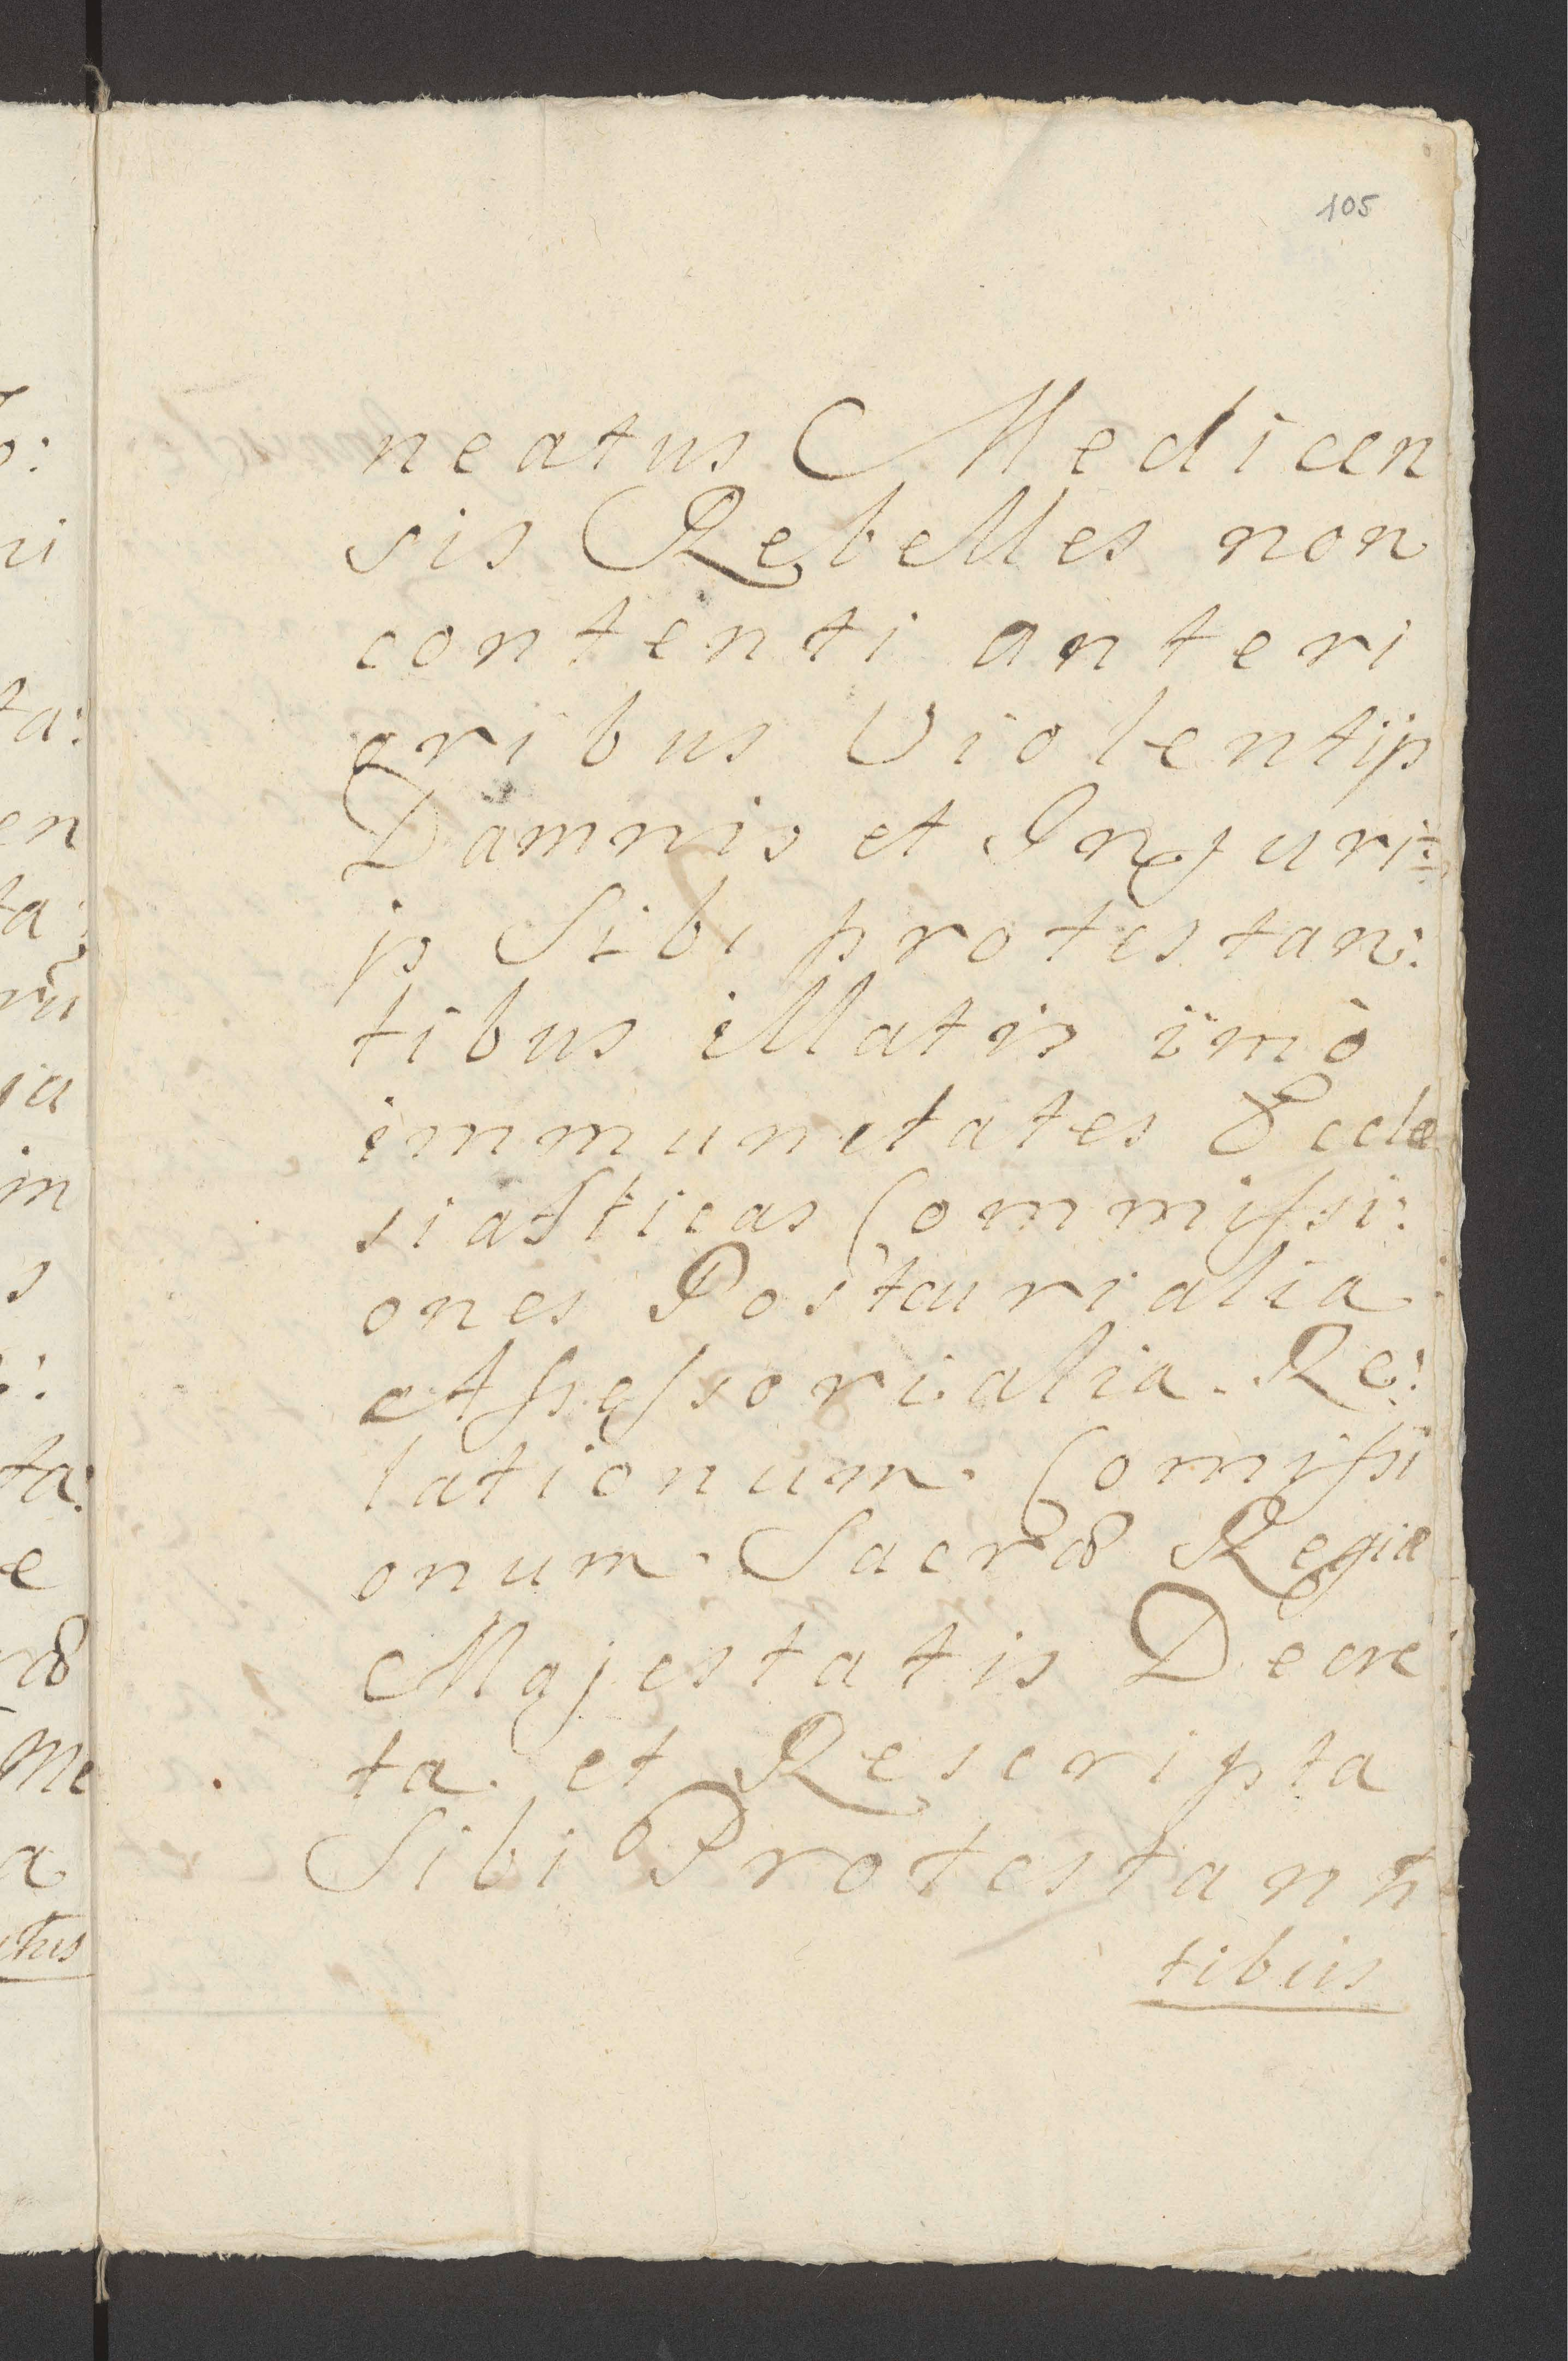 105
neatus Medicen
sis Rebelles non
contenti anteri
oribus Violentijs
Damnis et Injuri:
js Sibi protestan:
tibus illatis imò
immunitates Eccle
siasticas Commissi:
ones Postcurialia
Assessorialia. Re:
lationum. Comissi
onum. Sacræ Regiæ
Majestatis Decre
ta. et Rescripta
Sibi Protestann
tibus